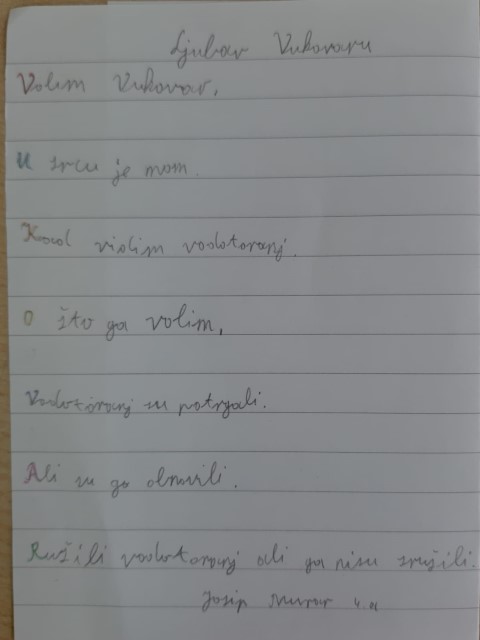 Ljubav Vukovaru
Volim Vukovar,
U srcu je mom.
Kad violim vodotoranj.
O što ga volim,
Vodotoranj su potrgali.
Ali su ga obnovili.
Rušili vodotoranj ali ga nisu srušili.
Josip 4.a